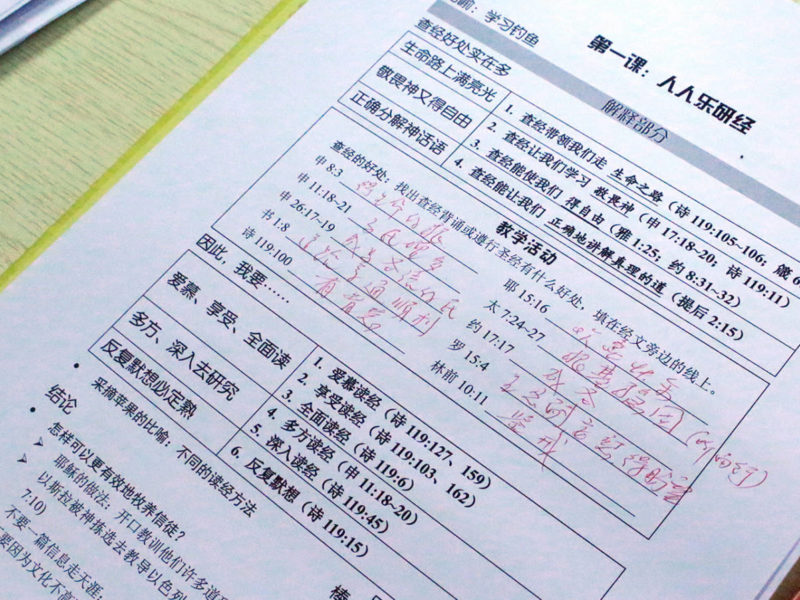 前：学习钓鱼
第一课：人人乐研经
解释部分
查经好处实在多
生命路上满亮光
敬畏神又得自由
正确分解神话语
1. 查经带领我们走 生命之路（诗 119:105~106；箴 6
2. 查经让我们学习 敬畏神（申 17:18~20；诗 119:11）
3. 查经能使我们 得自由（雅 1:25；约 8:31~32）
4. 查经能让我们 正确地讲解真理的道（提后 2:15）
教学活动
查经的好处。找出查经背诵或遵行圣经有什么好处，填在经文旁边的线上。
申 8:3
申 11:18-21
申 26:17-19
书 1.8 道路亨通顺利
诗 119:100
耶 15:16
太 7:24-27
约 17:17 成圣
罗 15:4
林前 10:11 鉴戒
因此，我要……
爱慕、享受、全面读
多方、深入去研究
反复默想必定熟
1. 爱慕读经（诗 119:127、159）
2. 享受读经（诗 119:103、162）
3. 全面读经（诗 119:6）
4. 多方读经（申 11:18~20）
5. 深入读经（诗 119:45）
6. 反复默想（诗 119:15）
采摘苹果的比喻：不同的读经方法
结论
怎样可以更有效地牧养信徒？
耶稣的做法：开口教训他们许多道
以斯拉被神拣选去教导以色列
7:10）
不要一篇信息走天涯
要因为文化不